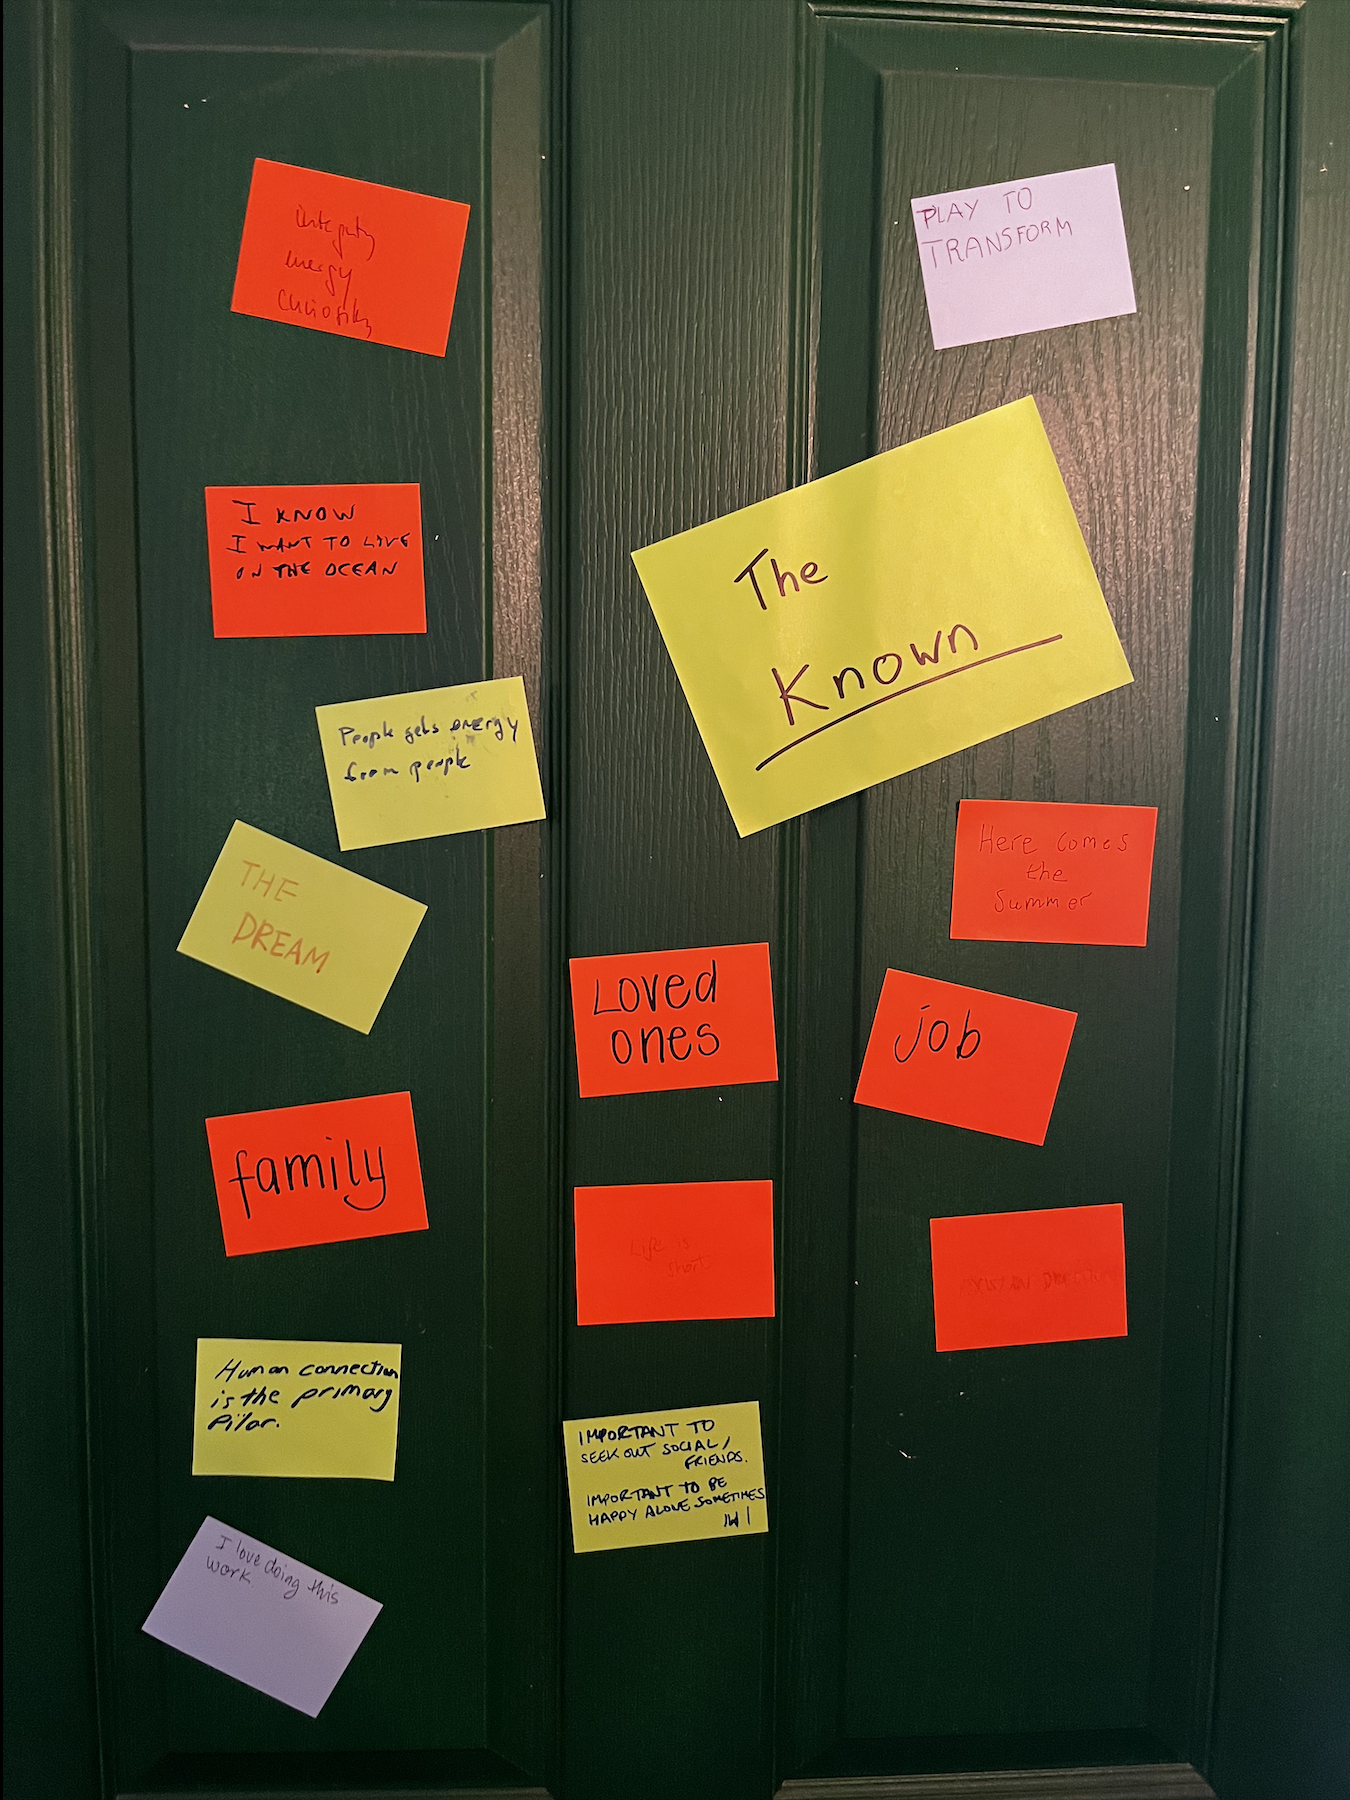 integrity
energy
curiosity
PLAY TO
TRANSFORM
I KNOW
I WANT TO LIVE
ON THE OCEAN
The
Known
People gets energy
from people
THE
DREAM
Here comes
the
Summer
Loved
ones
job
family
Life is
short
Human connection
is the primary
Pilar.
IMPORTANT TO
SEEK OUT SOCIAL/
FRIENDS.
IMPORTANT TO BE
HAPPY ALONE SOMETIMES
I love doing this
work